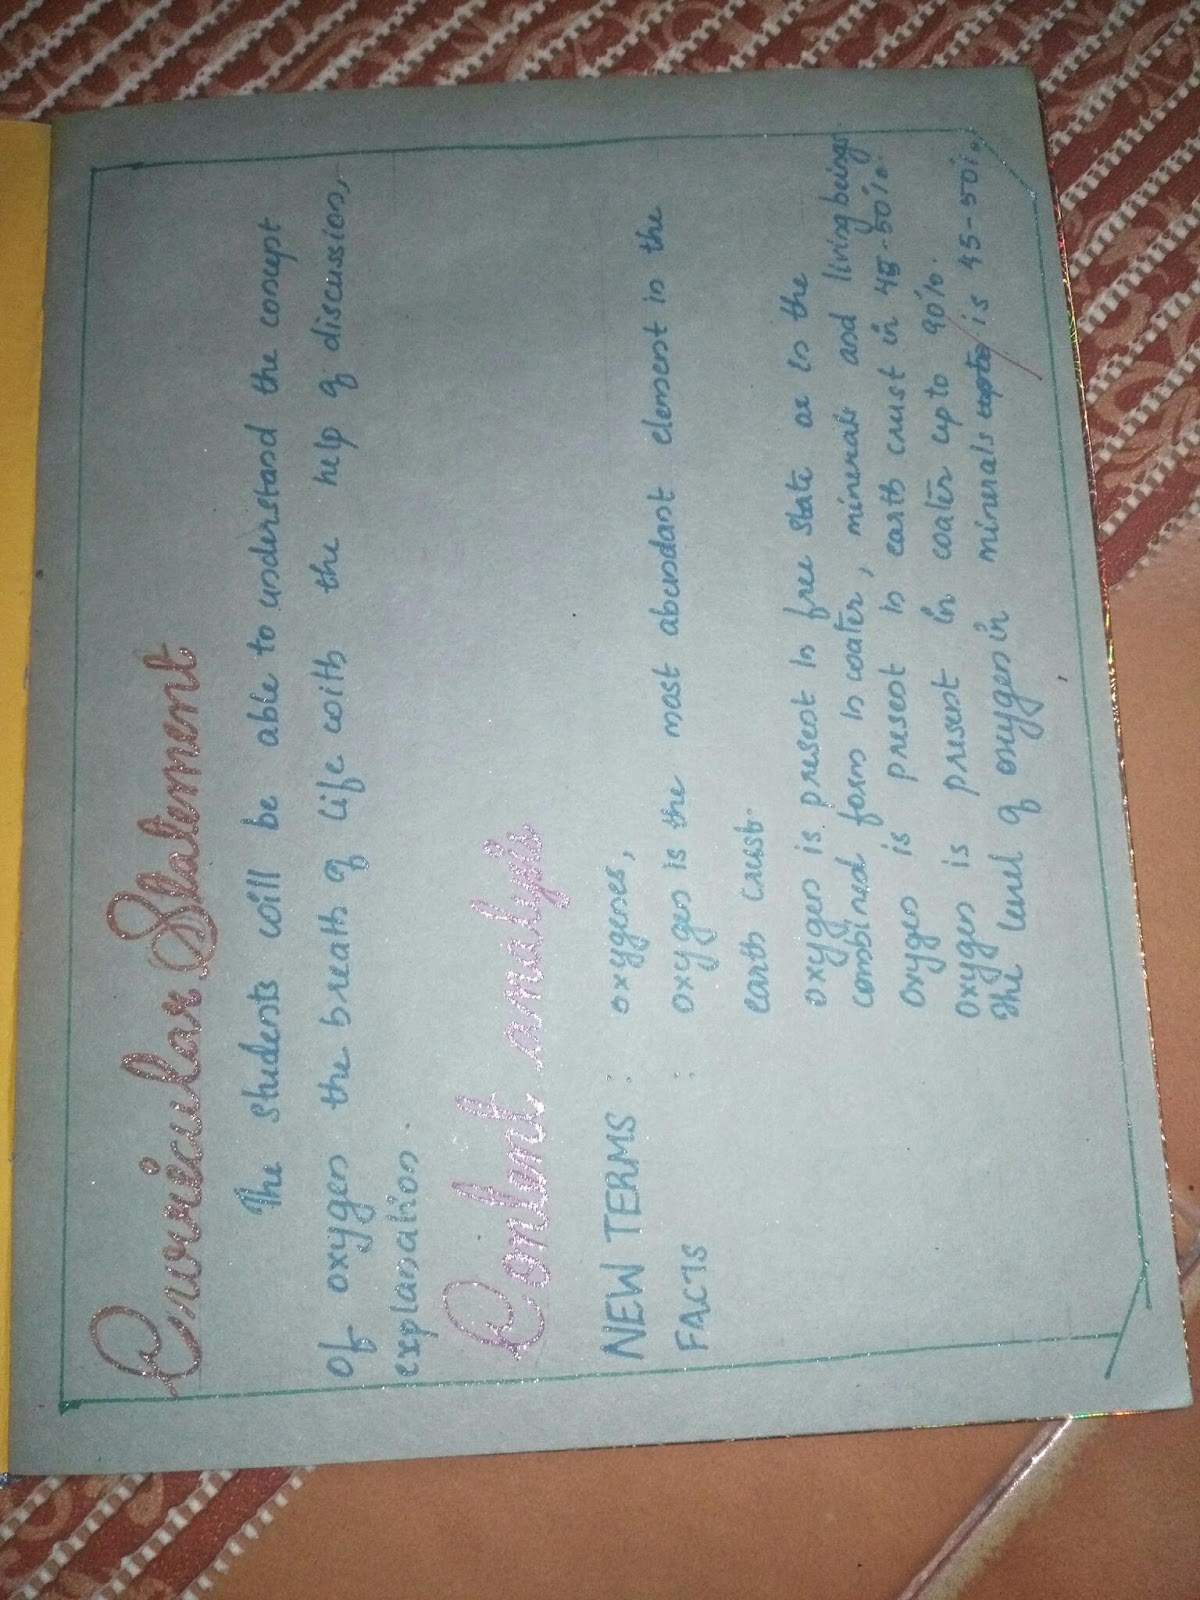 Curricular Statement
The students will be able to understand the concept
of oxygen the breath of life with the help of discussion,
explanation
Content analysis
NEW TERMS : oxygen,
FACTS : oxygen is the most abundant element in the
earth crust.
oxygen is present in free state as in the
combined form in water, minerals and living beings.
oxygen is present in earth crust in 45-50%.
oxygen is present in water upto 90%.
The level of oxygen in minerals is 45-50%.